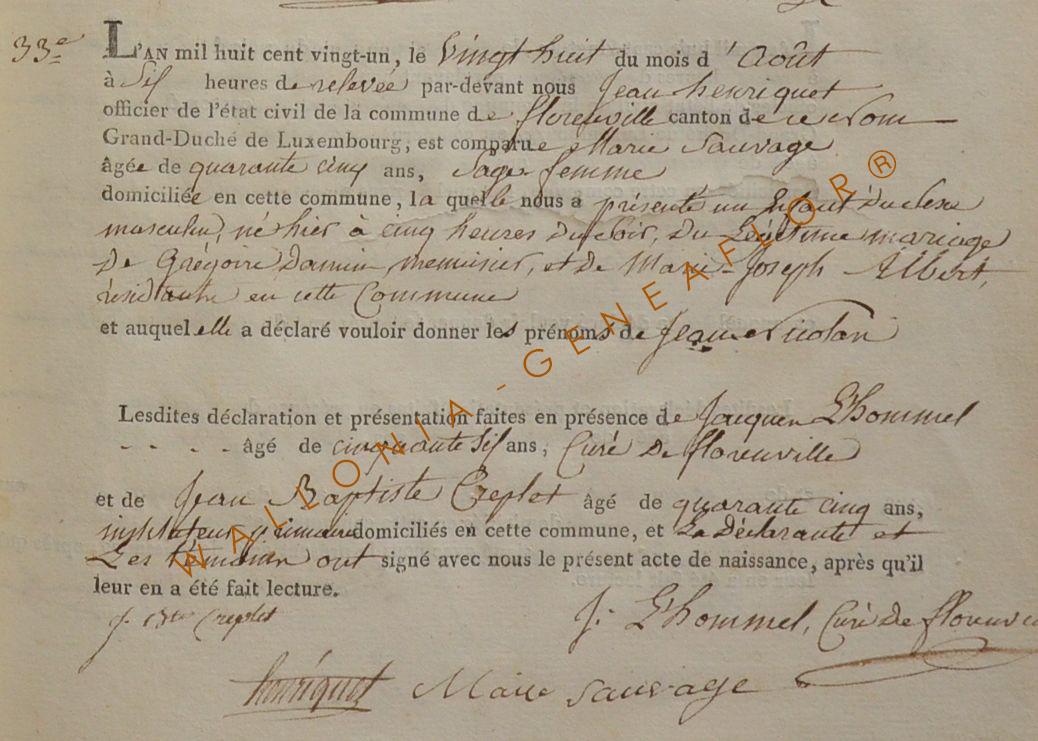 33e L'AN mil huit cent vingt-un, le vingt huit du mois d'Août
à six heures de relevée par-devant nous Jean henriquet
officier de l'état civil de la commune de florenville canton de ce nom
Grand-Duché de Luxembourg, est comparue Marie Sauvage
âgée de quarante cinq ans, Sage femme
domiciliée en cette commune, la quelle nous a présenté un Enfant du Sexe
masculin, né hier à cinq heures du soir, du Légitime mariage
de Grégoire Damin, menuisier, et de Marie-Joseph Albert,
résidante en cette Commune
et auquel elle a déclaré vouloir donner les prénoms de Jean Nicolas
Lesdites déclaration et présentation faites en présence de Jacques L'hommel
- - - - âgé de cinquante six ans, Curé de florenville
et de Jean Baptiste Creplet âgé de quarante cinq ans,
instituteur primaire domiciliés en cette commune, et La Déclarante et
Les témoins ont signé avec nous le présent acte de naissance, après qu'il
leur en a été fait lecture.
J. Bte Creplet J. L'hommel, Curé de
henriquet Marie Sauvage
WALLONIA - GENEAFLOR ®